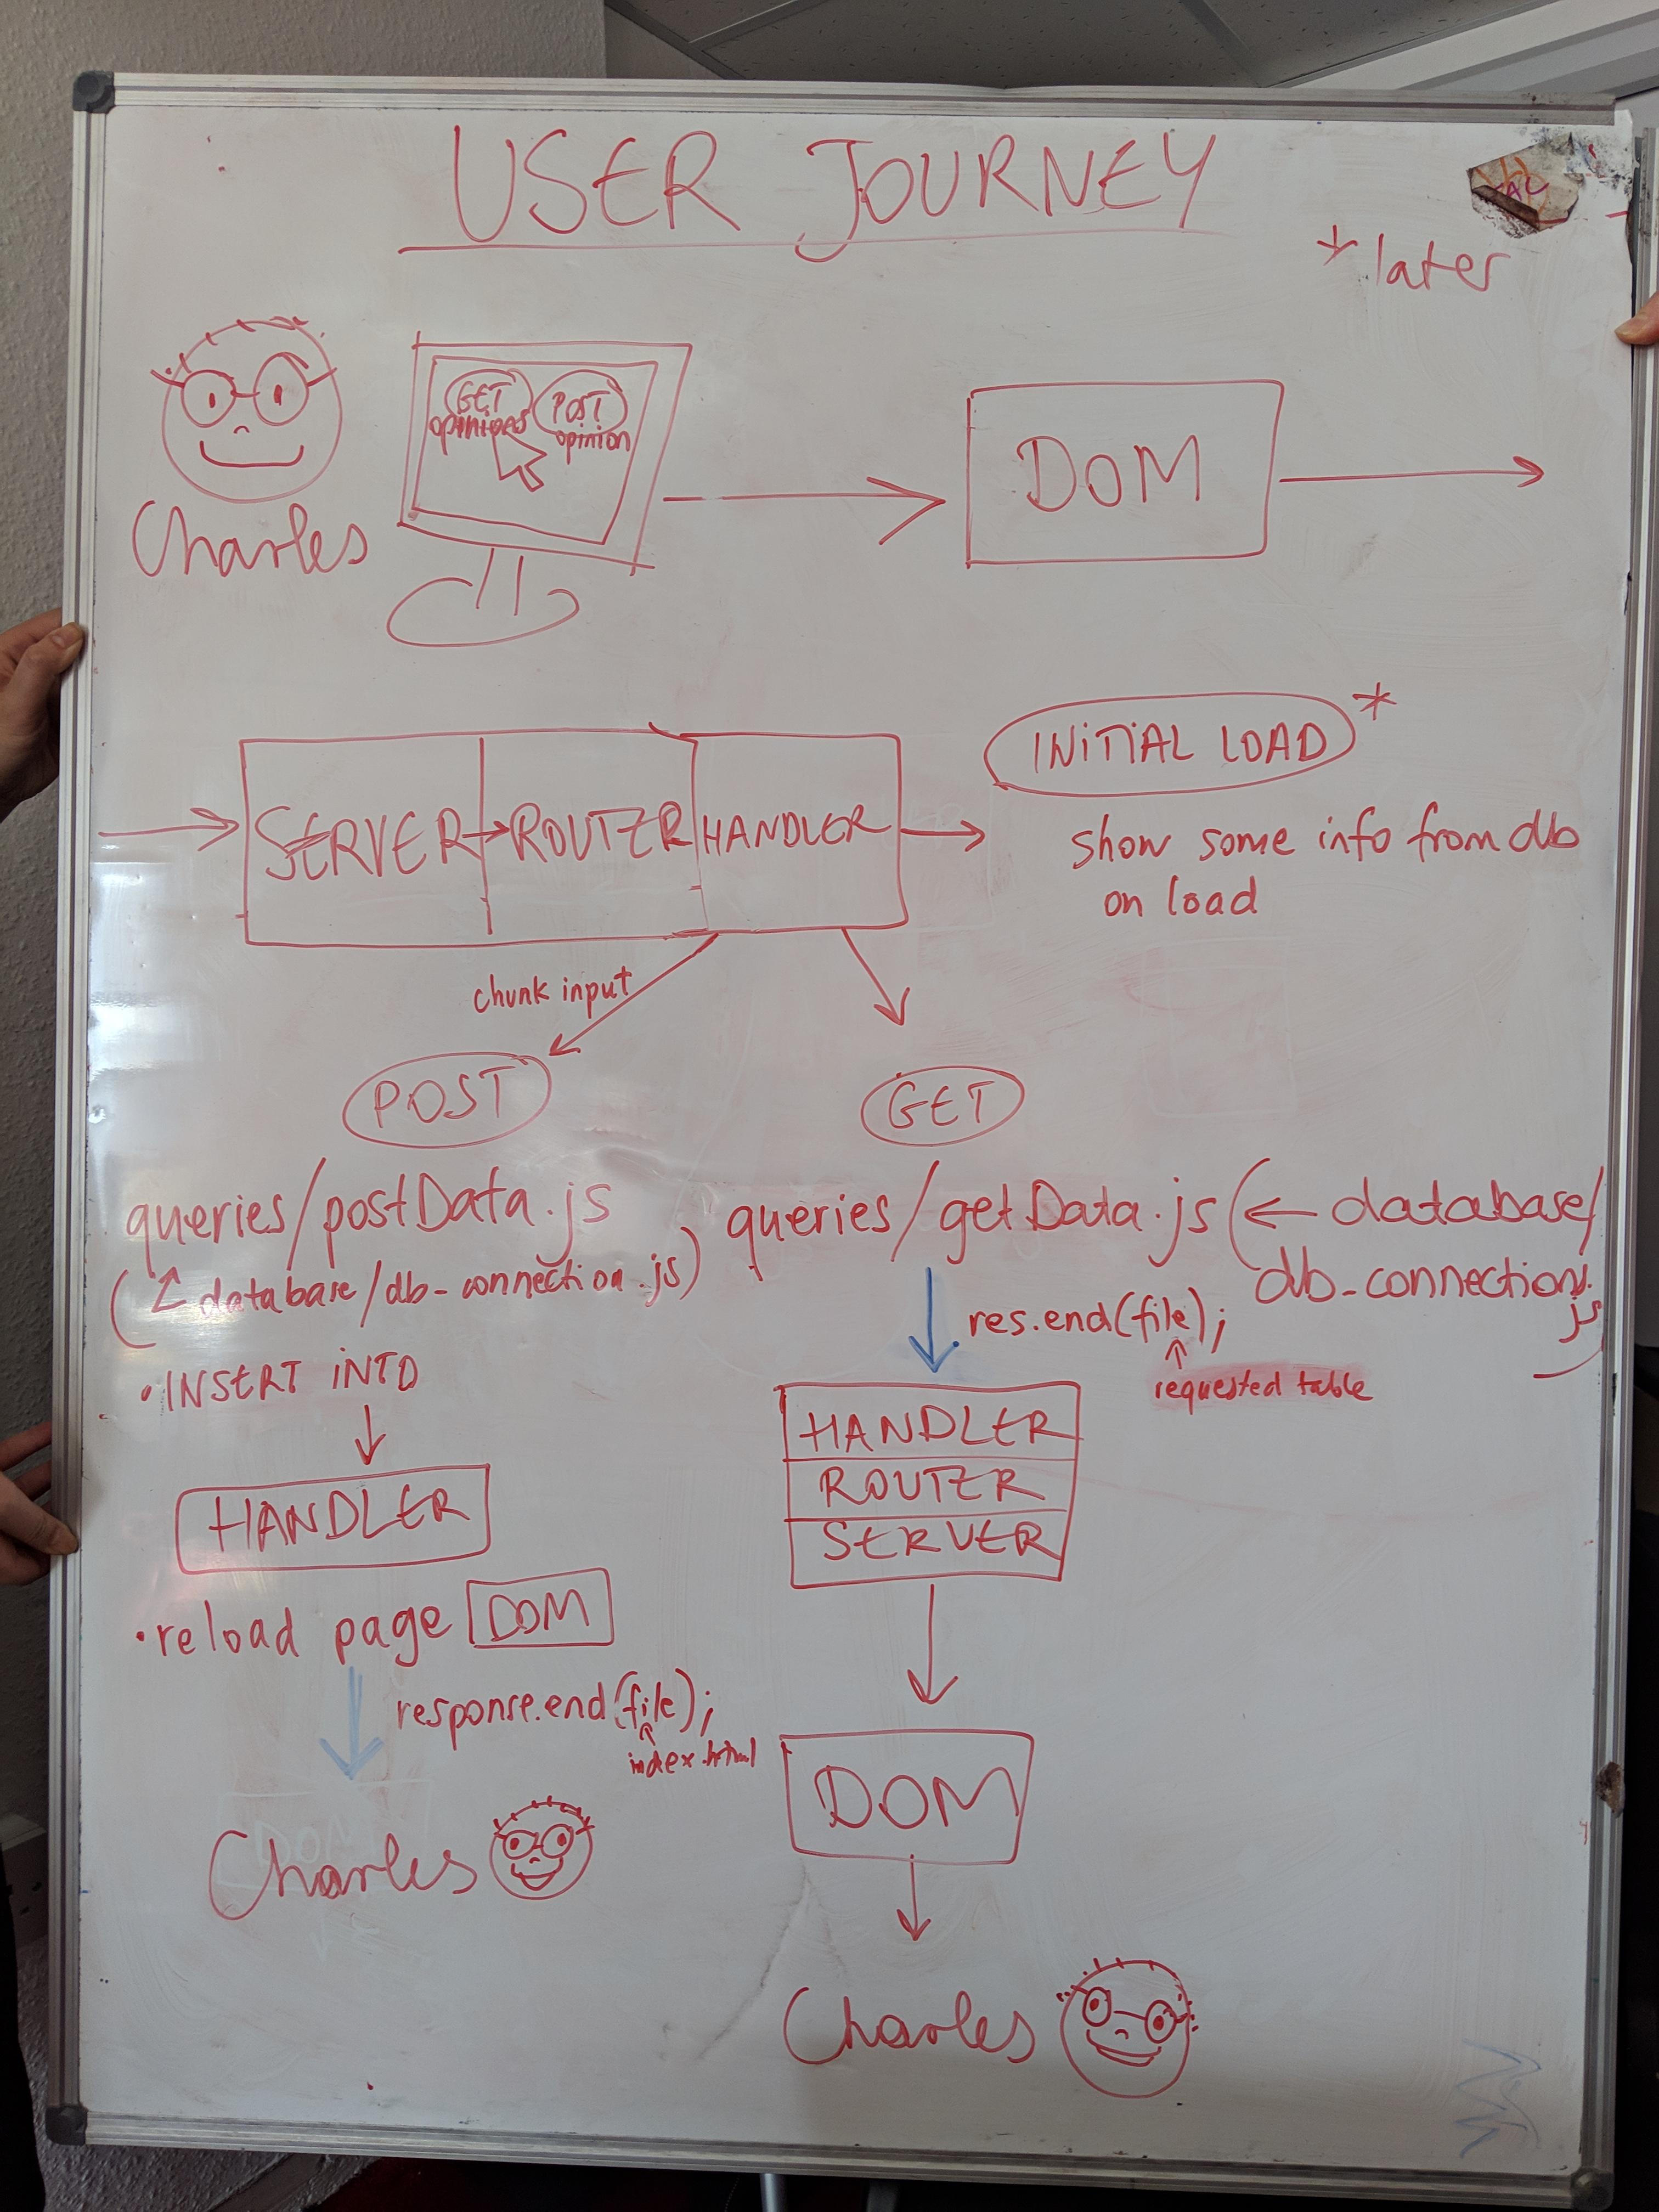 USER JOURNEY
* later
GET
opinions
POST
opinion
Charles
DOM
SERVER
ROUTER
HANDLER
INITIAL LOAD *
show some info from db
on load
chunk input
POST
GET
queries/postData.js
(database/db-connection.js)
• INSERT INTO
HANDLER
• reload page
DOM
response.end(file);
index.html
Charles
queries/getData.js (← database/
db-connection.
js)
res.end(file);
requested table
HANDLER
ROUTER
SERVER
DOM
Charles